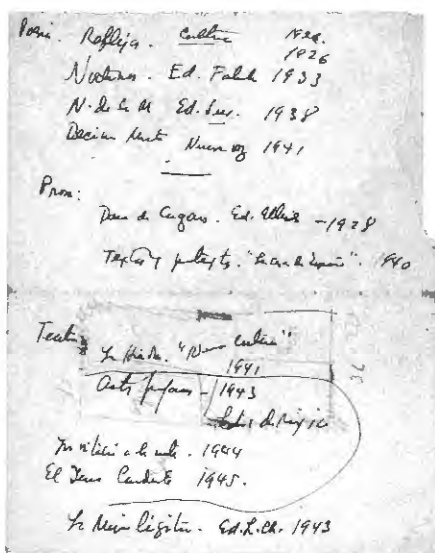 Poesía. Reflejos. Cultura
1926
Nocturnos. Ed. Fabula 1933
N. de la M Ed. Sur. 1938
Décima Muerte Nueva 1941
Prosa:
Dama de Corazones. Ed. Ulises - 1928
Textos y pretextos. "La casa de España". 1940
Teatro
La Hiedra. "Nueva cultura"
1941
Autos profanos - 1943
Letras de México
Invitación a la muerte. 1944
El Yerro Candente 1945.
La Mujer legítima. Ed. L. Ch. 1943